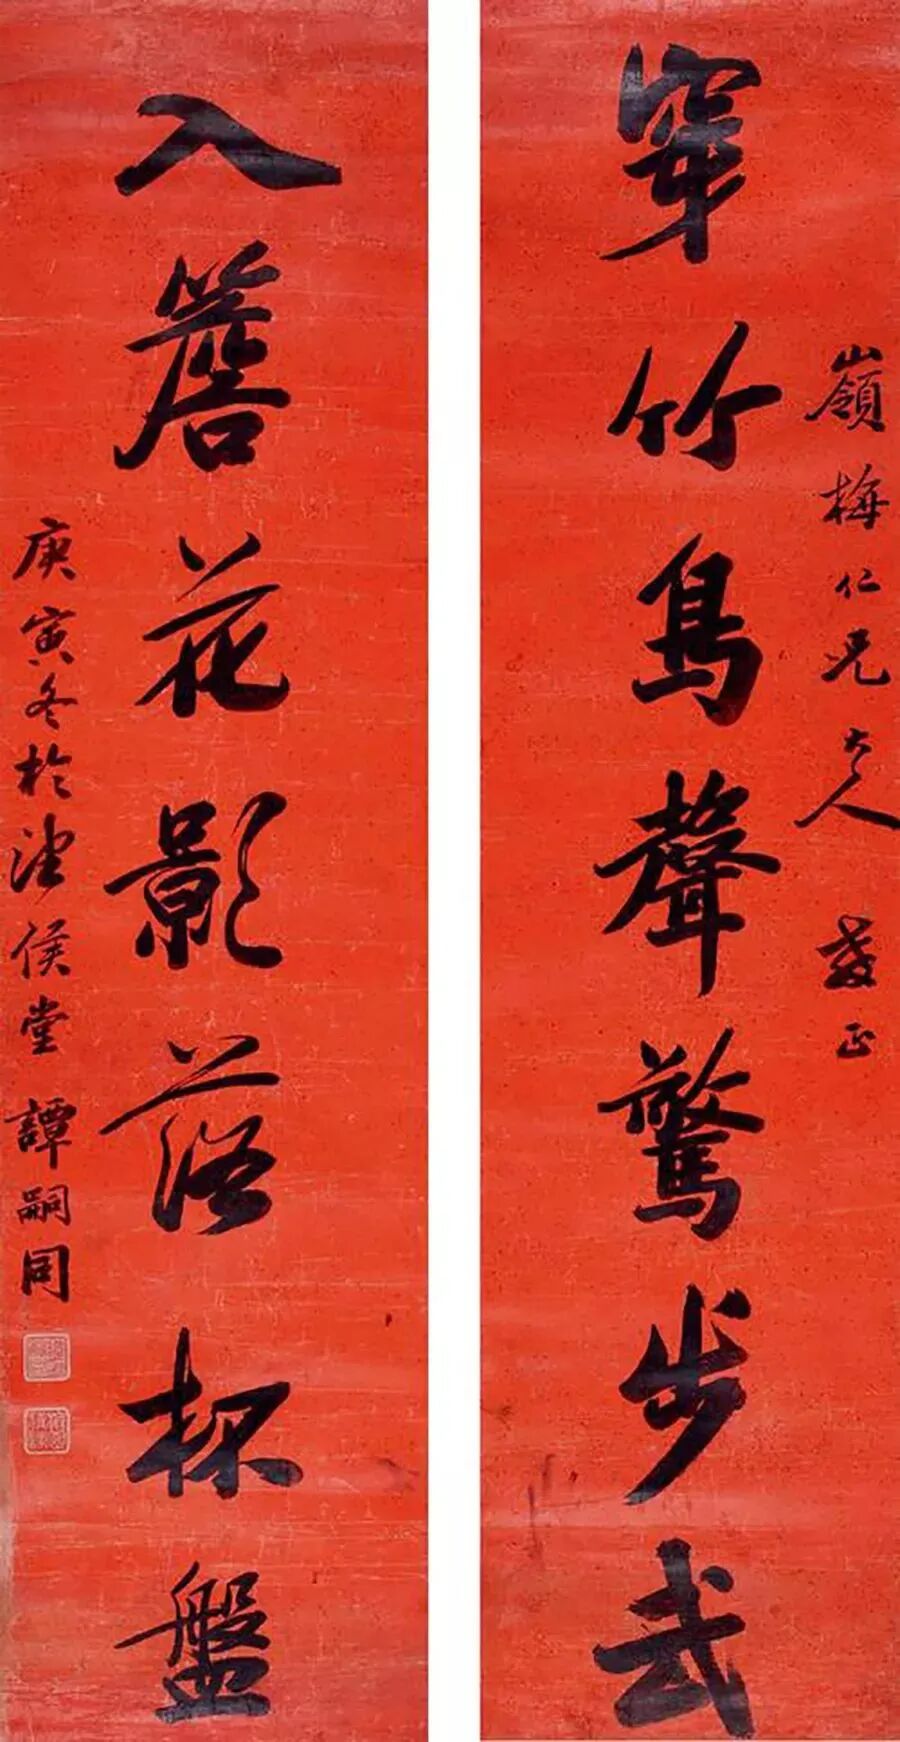 嶺梅仁兄大人 教正
穿竹鳥聲驚步武
入簷花影落杯盤
庚寅冬於侯堂 譚嗣同